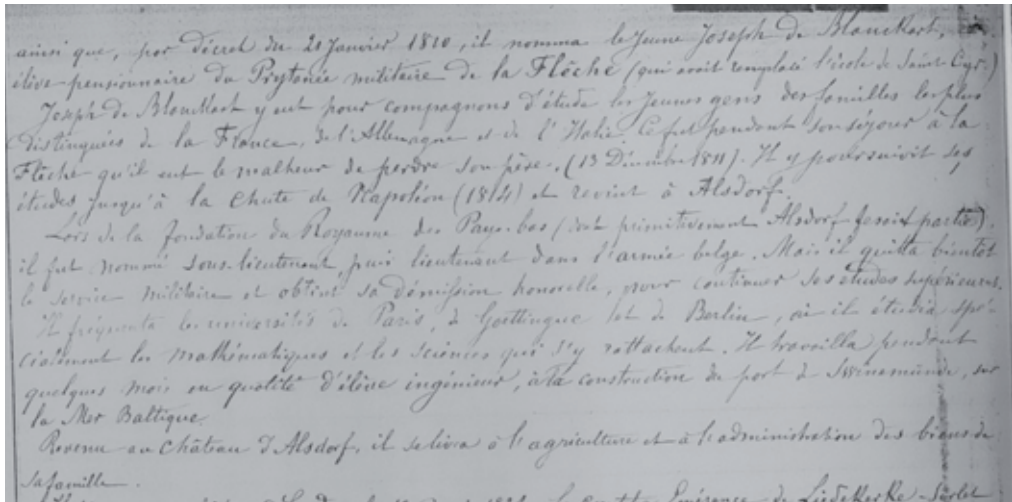 ainsi que, par décret du 21 Janvier 1810, il nomma le jeune Joseph de Blanckart,
élève-pensionnaire du Prytanée militaire de la Flêche (qui avait remplacé l'école de Saint Cyr.)
Joseph de Blanckart y eut pour compagnons d'étude les jeunes gens des familles les plus
distinguées de la France, de l'Allemagne et de l'Italie. Ce fut pendant son séjour à la
Flêche qu'il eut le malheur de perdre son père. (13 Décembre 1811). Il y poursuivit ses
études jusqu'à la chute de Napoléon (1814) et revint à Alsdorf.
Lors de la fondation du Royaume des Pays-bas (dont primitivement Alsdorf fesoit partie).
il fut nommé sous-lieutenant, puis lieutenant dans l'armée belge. Mais il quitta bientôt
le service militaire et obtint sa démission honorable, pour continuer ses études supérieures.
Il fréquenta les universités de Paris, de Goettingue et de Berlin, où il étudia spé-
cialement les mathématiques et les sciences qui s'y rattachent. Il travailla pendant
quelques mois en qualité d'élève ingénieur, à la construction du port de Swinemünde, sur
la Mer Baltique.
Revenu au château d'Alsdorf, il se livra à l'agriculture et à l'administration des biens de
sa famille.
la Emérence de Liedekerke-Surlet